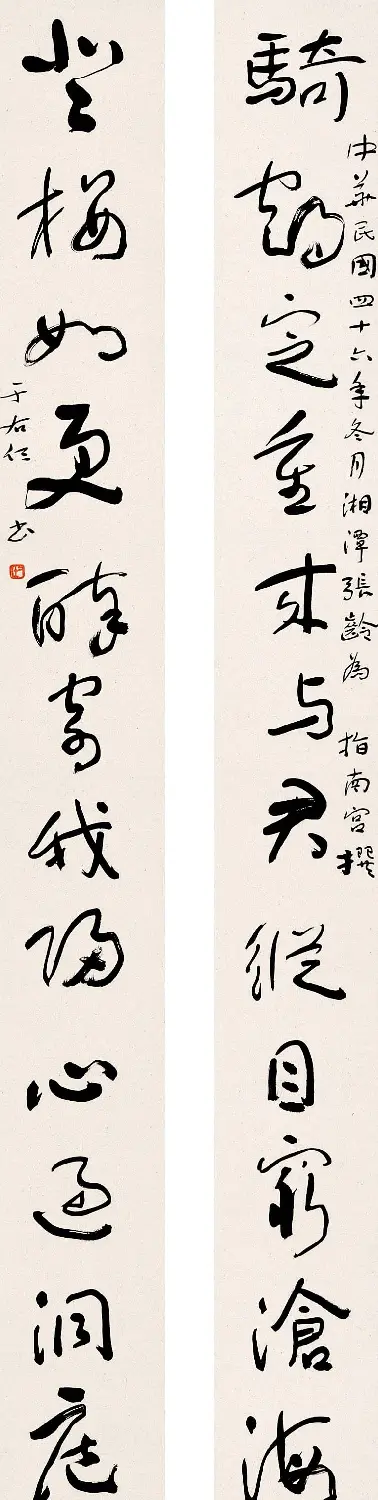 中華民國四十六年冬月湘潭張齡為 指南宮撰
騎鶴定重来与君縱目窮滄海
登樓如更醉寄我歸心過洞庭
于右任書